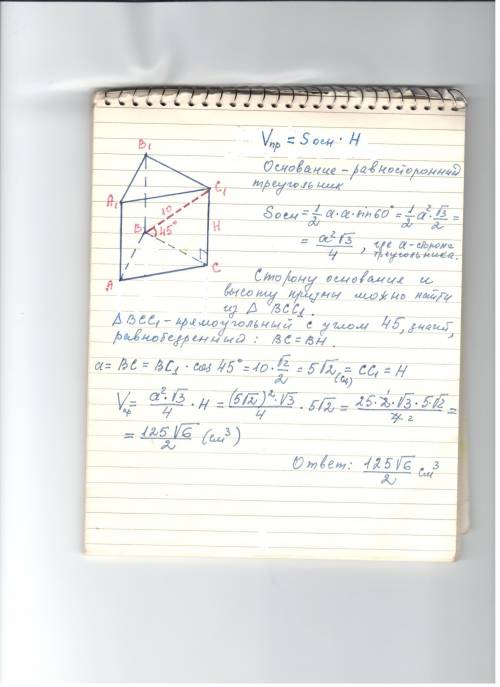 Vпр = Sосн · H
Основание - равносторонний
треугольник
Sосн = 1/2 a·a·sin60° = 1/2 a² · √3/2 =
= a²√3/4, где a - сторона
треугольника.
B₁
A₁
C₁
10
B
45°
H
C
A
Сторону основания и
высоту призмы можно найти
из △ BCC₁
△BCC₁ - прямоугольный с углом 45, значит,
равнобедренный: BC = BH.
a = BC = BC₁ · cos 45° = 10 · √2/2 = 5√2 (см) = CC₁ = H
Vпр = a²·√3/4 · H = (5√2)²·√3/4 · 5√2 = 25·2·√3·5√2/4 2 =
= 125√6/2 (см³)
Ответ: 125√6/2 см³